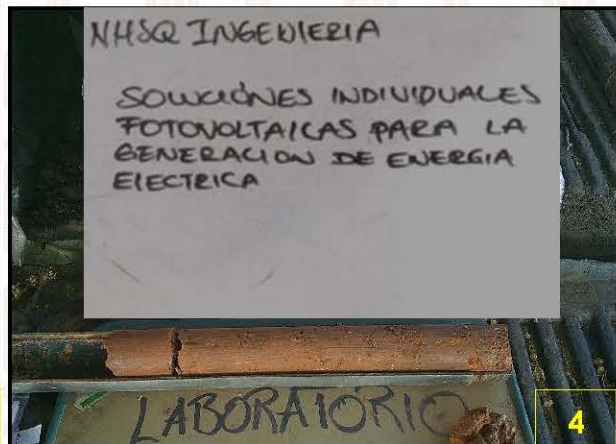 NHSQ INGENIERIA
SOLUCIÓNES INDIVIDUALES
FOTOVOLTAICAS PARA LA
GENERACION DE ENERGIA
ELECTRICA
LABORATORIO
4